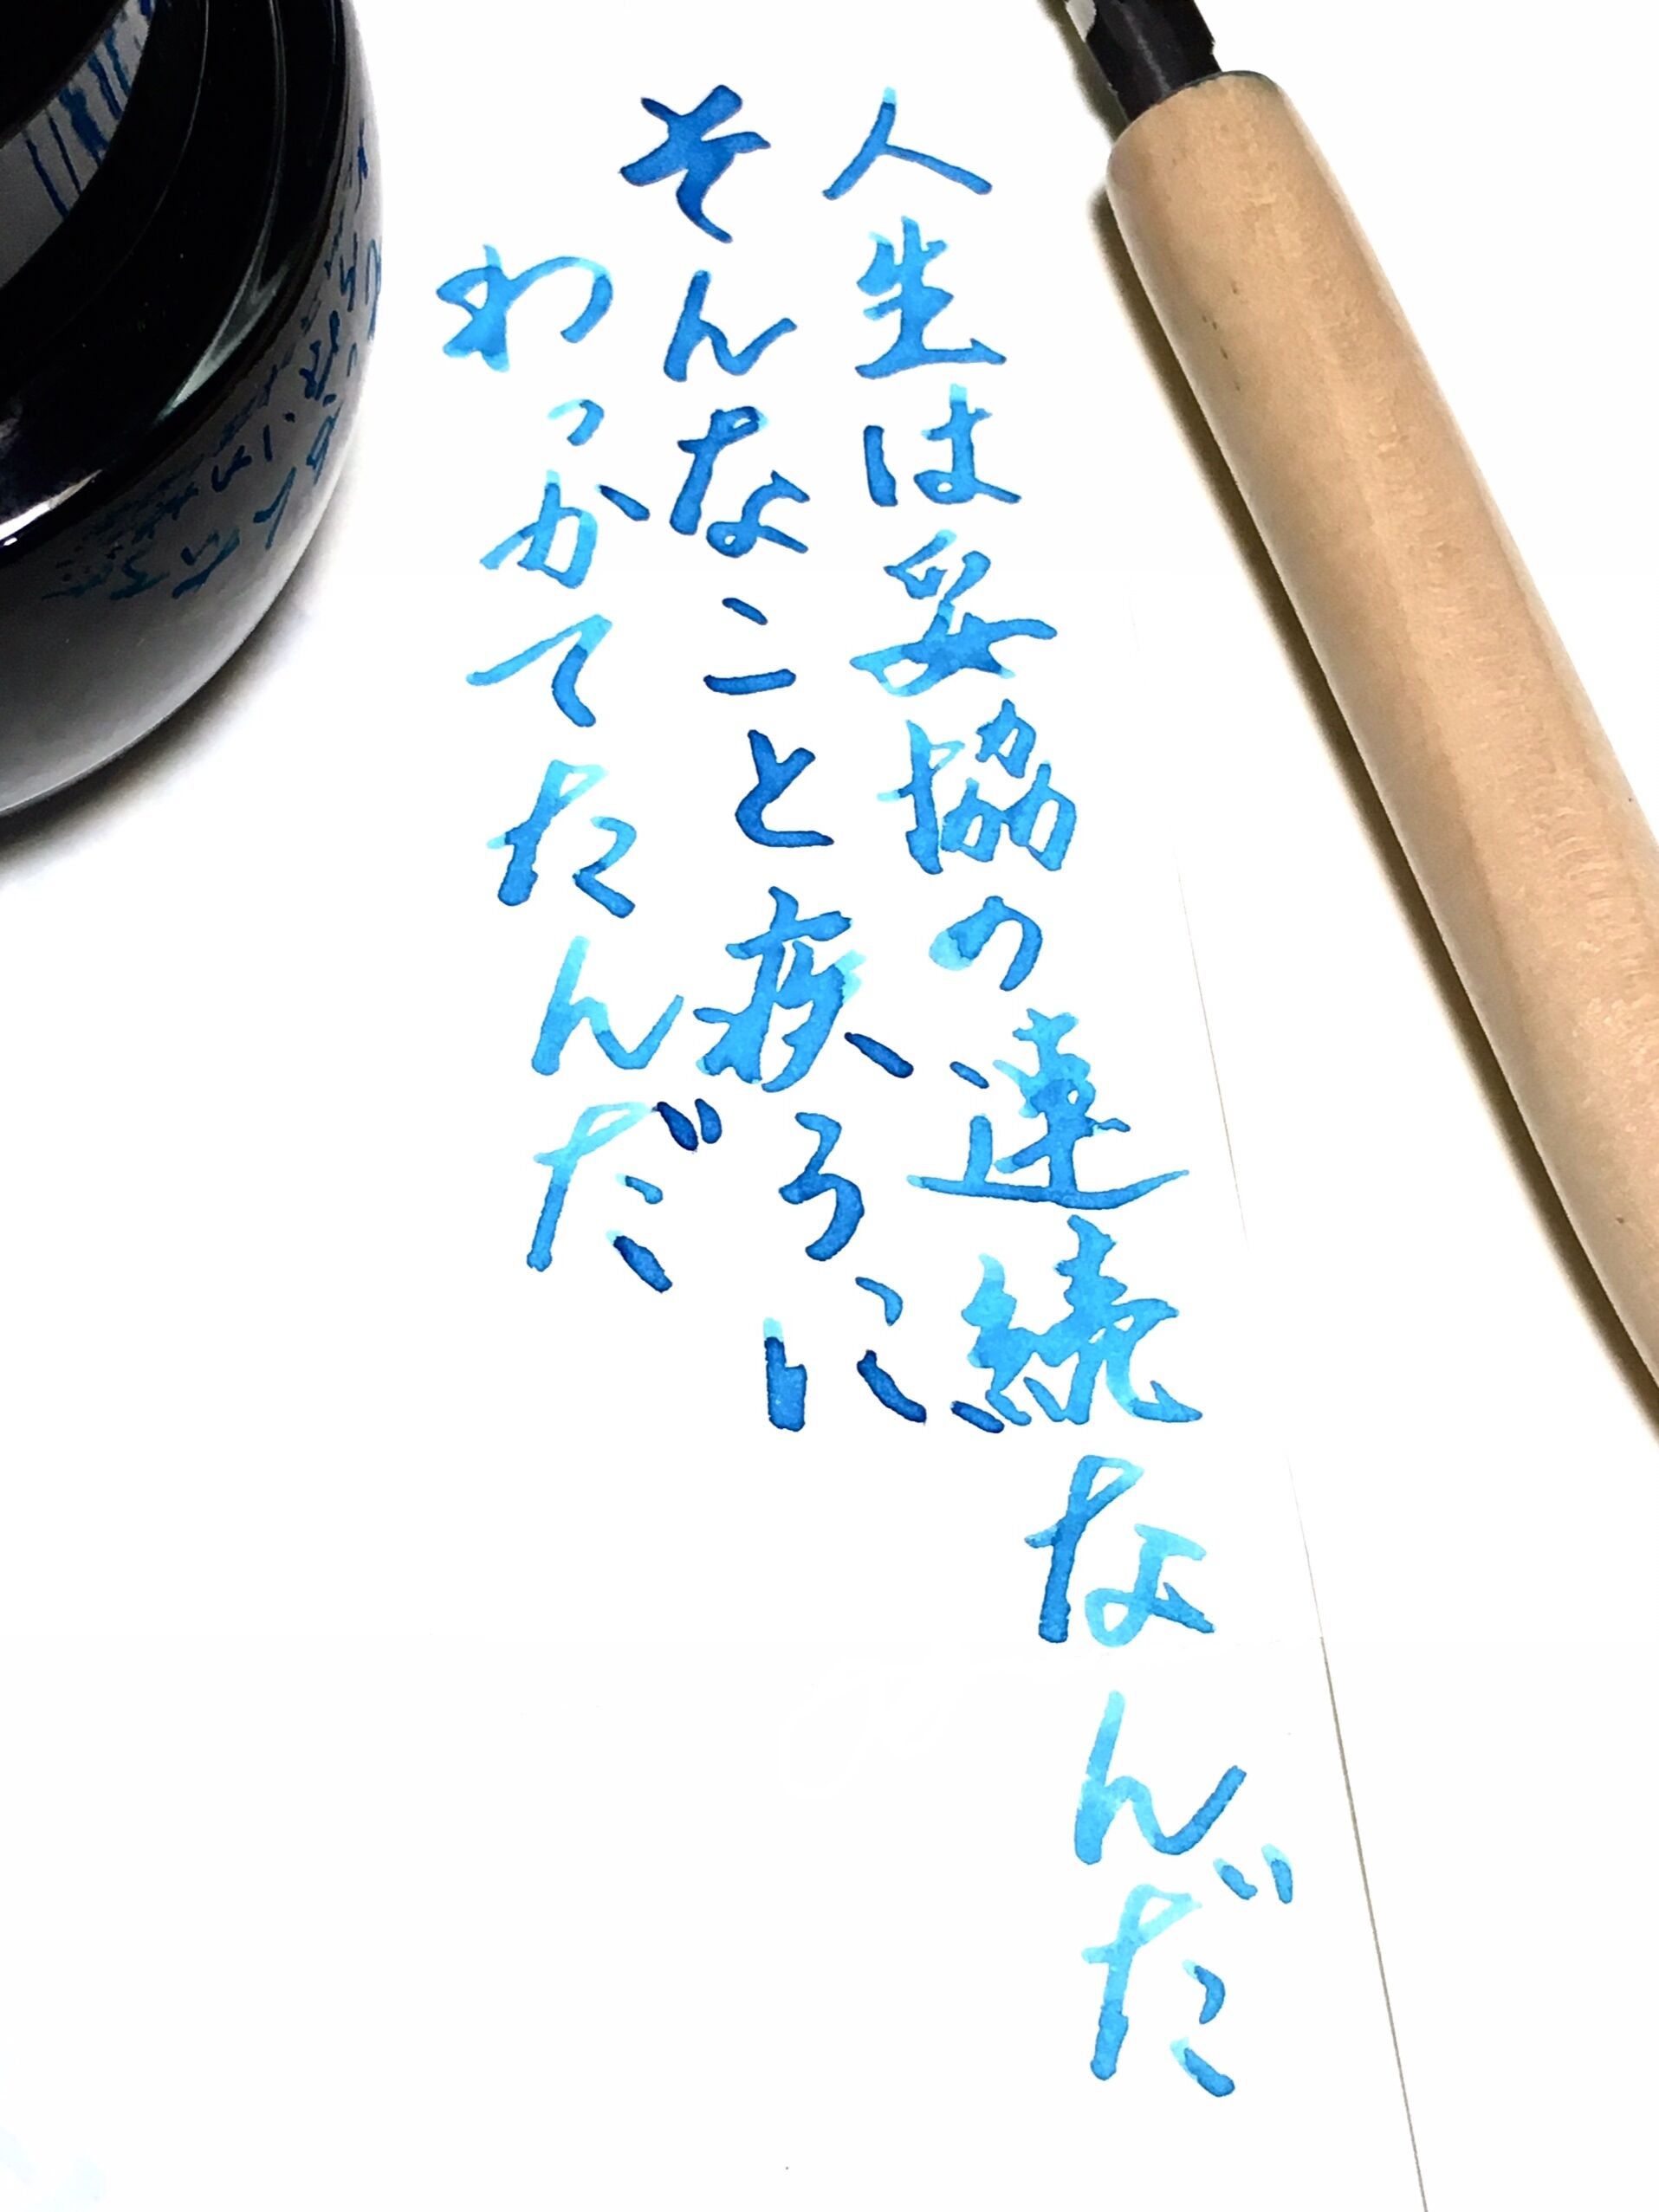 人生は妥協の連続なんだ
そんなこと疾うに
わっかてたんだ